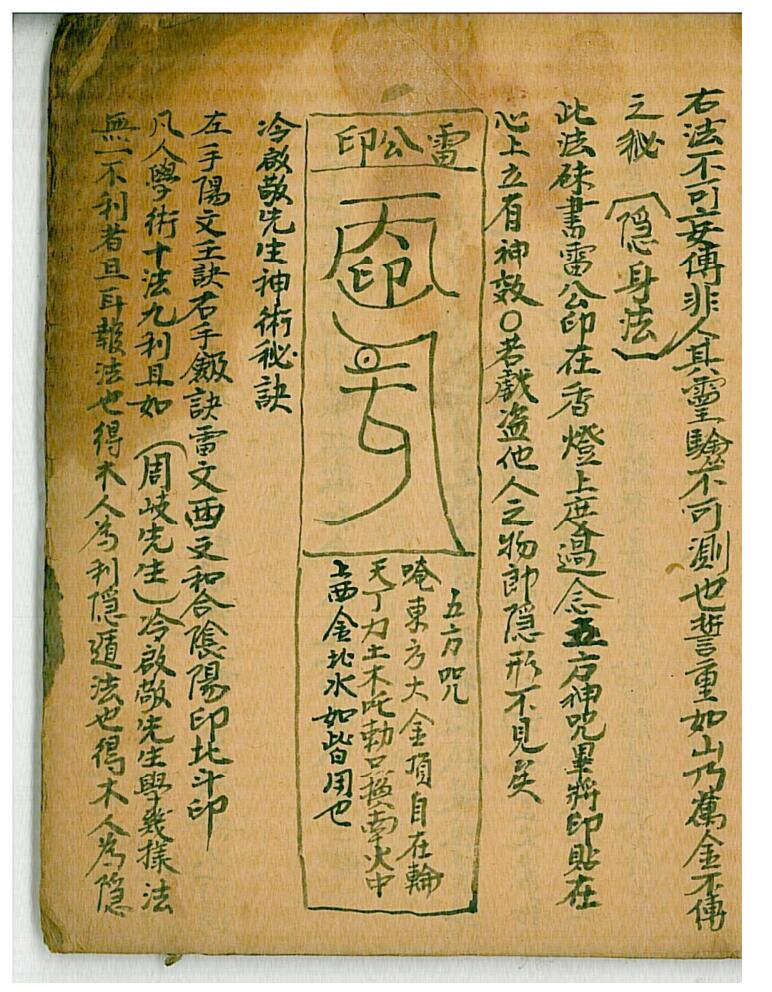 右法不可妄傳非人其霊驗不可測也誓重如山乃萬金不傳
之秘（隠身法）
此法硃書雷公印在香燈上度過念五方神咒畢將印貼在
心上立有神效〇若戲盗他人之物即隠形不見矣
雷公印
五方咒
唵東方大金頂自在輪
天丁力土木吒勅口換南火中
上西金北水如皆用也
冷啟敬先生神術秘訣
左手陽文壬訣右手劔訣雷文西文和合陰陽印北斗印
凡人學術十法九利且如（周岐先生）冷啟敬先生學幾樣法
無一不利者且耳報法也得木人為利隠遁法也得木人為隠